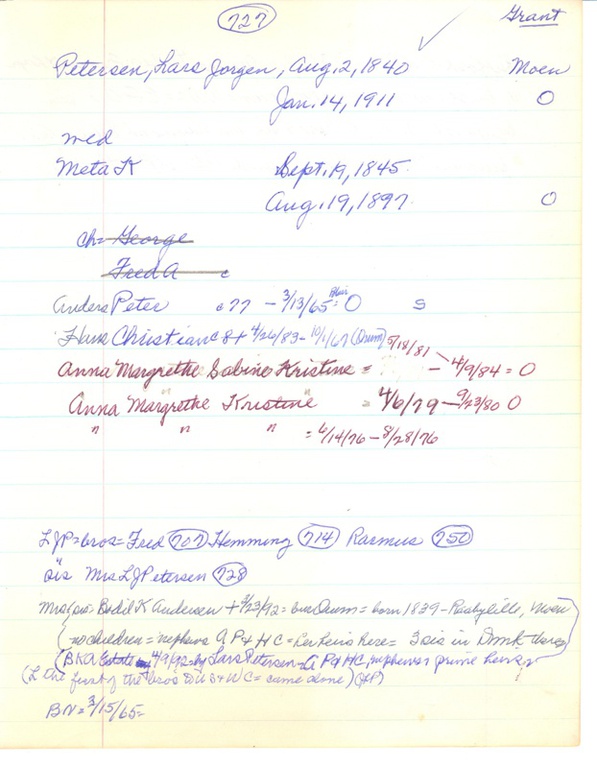 727
Grant
Petersen, Lars Jorgen, Aug. 2, 1840 Moen
Jan. 14, 1911 O
wed
Meta K Sept. 19, 1845
Aug. 19, 1897 O
ch= George
Fred A
Anders Peter c77 - 3/13/65 = O S
Blair
Hans Christian c8+ 4/26/83 - 10/1/67 (Orum)
Anna Margrethe Sabine Kristine = 5/18/81 - 4/9/84 = O
Anna Margrethe Kristine = 4/6/79 - 9/23/80 O
" " " = 6/14/76 - 8/28/76
LJP = bros = Fred 707 Hemming 714 Rasmus 750
sis Mrs LJ Petersen 728
Mrs sis = Bodil K Andersen + 3/23/92 = bur Orum = born 1839 - Moen
(no children = nephews A P & H C = her heirs here = 3 sis in Dmrk
(BKA Estate 4/9/92 = by Lars Petersen = A P & HC, nephews
(L the first of the bros came alone)
BN = 3/15/65 =